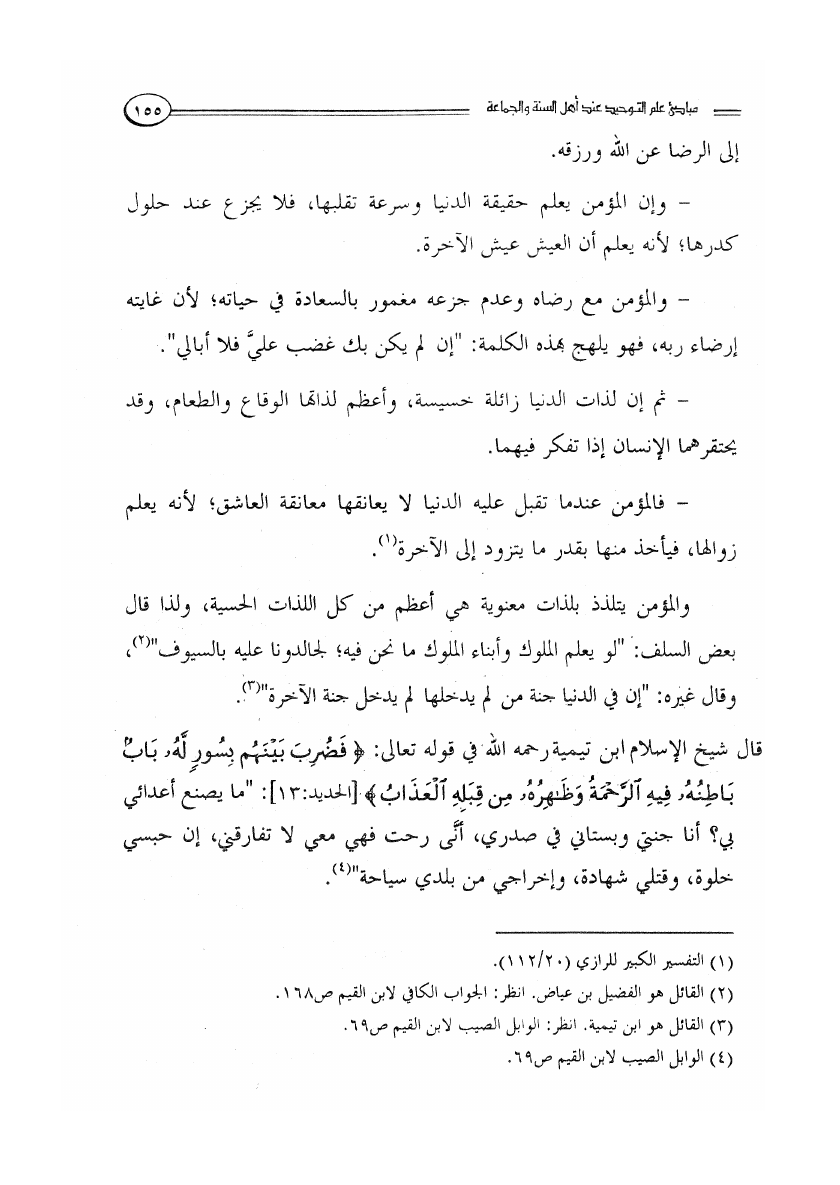 مبادئ علم التوحيد عند أهل السنة والجماعة ١٥٥
إلى الرضا عن الله ورزقه.
- وإن المؤمن يعلم حقيقة الدنيا وسرعة تقلبها، فلا يجزع عند حلول
كدرها؛ لأنه يعلم أن العيش عيش الآخرة.
- والمؤمن مع رضاه وعدم جزعه مغمور بالسعادة في حياته؛ لأن غايته
إرضاء ربه، فهو يلهج بهذه الكلمة: "إن لم يكن بك غضب عليَّ فلا أبالي".
- ثم إن لذات الدنيا زائلة خسيسة، وأعظم لذاتها الوقاع والطعام، وقد
يحتقرهما الإنسان إذا تفكر فيهما.
- فالمؤمن عندما تقبل عليه الدنيا لا يعانقها معانقة العاشق؛ لأنه يعلم
زوالها، فيأخذ منها بقدر ما يتزود إلى الآخرة(١).
والمؤمن يتلذذ بلذات معنوية هي أعظم من كل اللذات الحسية، ولذا قال
بعض السلف: "لو يعلم الملوك وأبناء الملوك ما نحن فيه؛ لجالدونا عليه بالسيوف"(٢)،
وقال غيره: "إن في الدنيا جنة من لم يدخلها لم يدخل جنة الآخرة"(٣).
قال شيخ الإسلام ابن تيمية رحمه الله في قوله تعالى: ﴿ فَضُرِبَ بَيْنَهُم بِسُورٍ لَّهُۥ بَابٌ
بَاطِنُهُۥ فِيهِ ٱلرَّحْمَةُ وَظَٰهِرُهُۥ مِن قِبَلِهِ ٱلْعَذَابُ ﴾ [الحديد:١٣]: "ما يصنع أعدائي
بي؟ أنا جنتي وبستاني في صدري، أنَّى رحت فهي معي لا تفارقني، إن حبسي
خلوة، وقتلي شهادة، وإخراجي من بلدي سياحة"(٤).
(١) التفسير الكبير للرازي (١١٢/٢٠).
(٢) القائل هو الفضيل بن عياض. انظر: الجواب الكافي لابن القيم ص١٦٨.
(٣) القائل هو ابن تيمية. انظر: الوابل الصيب لابن القيم ص٦٩.
(٤) الوابل الصيب لابن القيم ص٦٩.